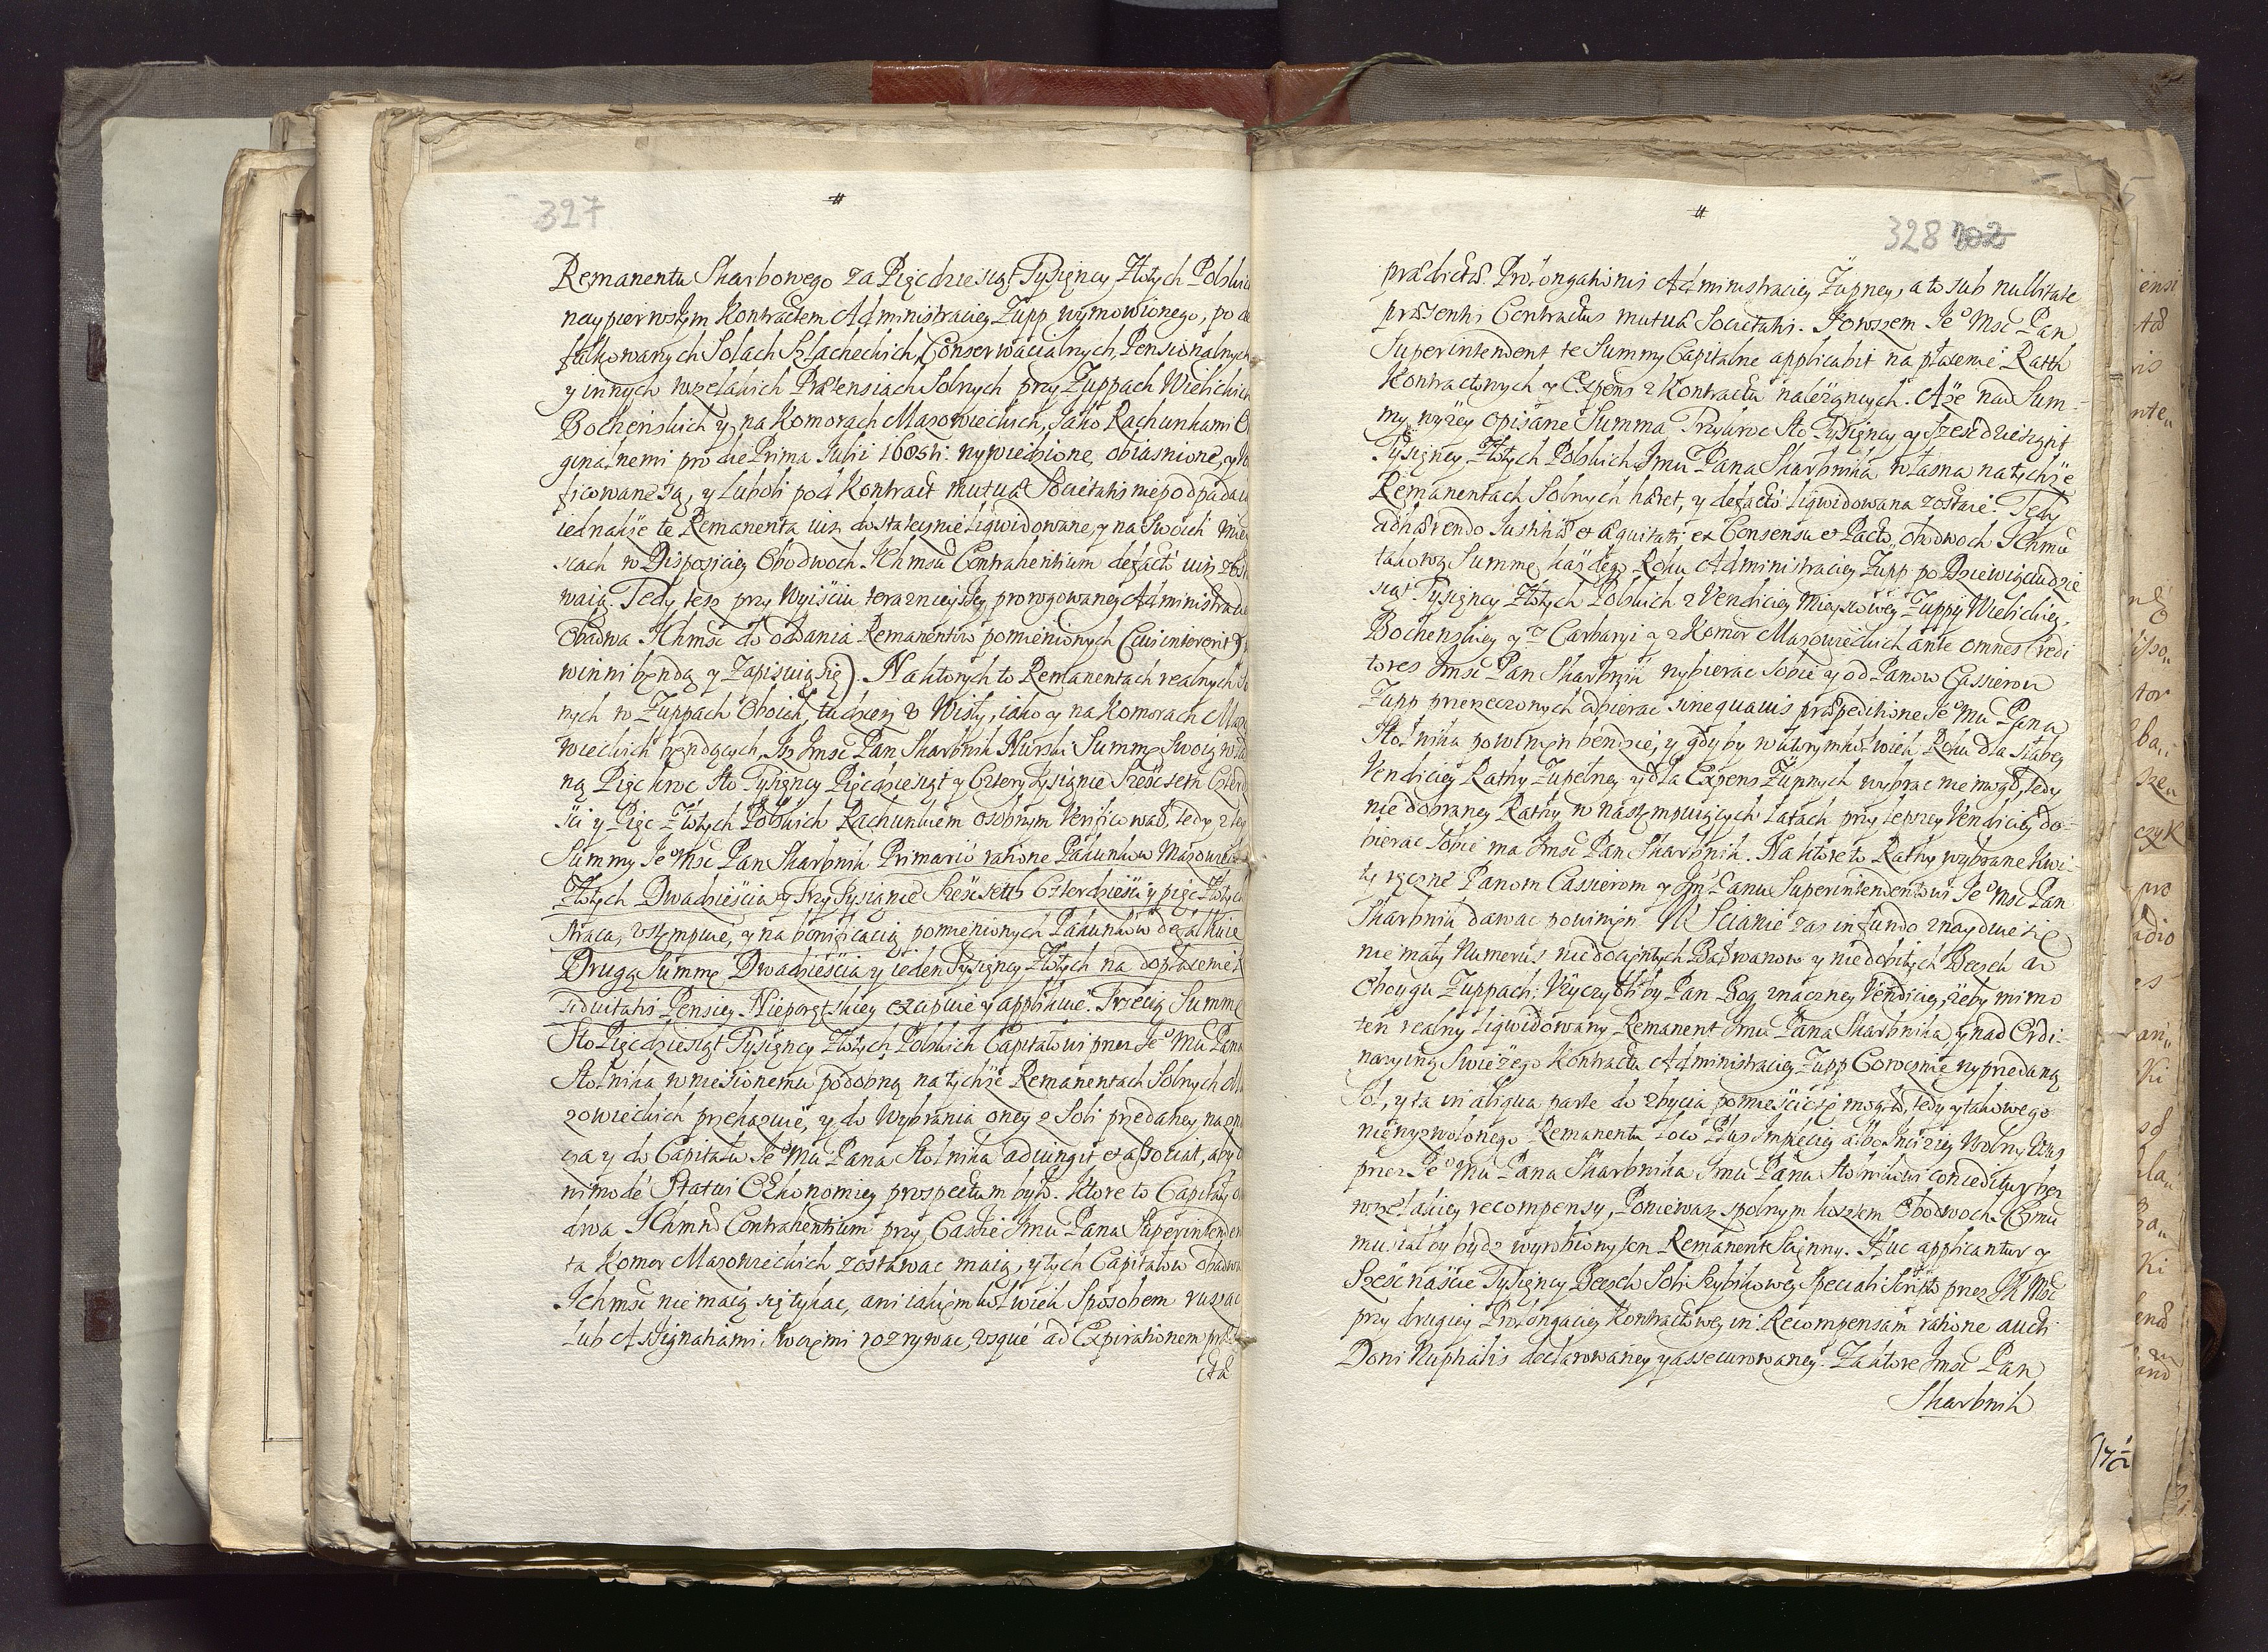 327
#
Remanentu Skarbowego za Pięcdziesiąt Tysięncy Złotych Polskic
naypierwszym Kontractem Administraciey Zupp wymowionego, po de
falkowanych Solach Szlacheckich, Conserwacialnych, Pensionalnych
y innych wszelakich Prætensiach Solnych przy Zuppach Wielickich
Bochenskich y na Komorach Mazowieckich, Jako Rachunkami O
ginalnemi pro die Prima Julii 1685ti wywiedzione, obiasnione, y
ficowane są, y luboli pod Kontract mutuæ Societatis niepodpadai
iednakże te Remanenta uisz dostatecznie ligwidowane, y na Swoich Miey
scach w Disposiciey Obodwoch Ichmsciu Contrahentium defacto uisz zosta
waią. Tedy tesz przy Wyisciu terazneyszey prorogowaney Administracie
Obadwa Ichmsc do oddania Remanentow pomienionych (Cuius intererit)
winni bendą y Zapisuią się). Na ktorych to Remanentach realnych So
nych w Zuppach Oboich, tudziesz v Wisły, iako y na Komorach Mazo
wieckich bendących, Isz Jmsc Pan Skarbnik Nurski Summę Swoią własną
ną Pięc kroc Sto Tysięncy Pięcdziesiąt y Cztery tysiąnce Szescset Czterdzie
sci y Pięc Złotych Polskich Rachunkiem osobnym Verificował, tedy z tey
Summy Je⁰ Msc Pan Skarbnik Primario ratione Pakunkow Mazowieckich
Złotych Dwadziescia y Trzy Tysiąnce Szescseth Czterdziesci y pięc Złotych
straca, vstempuie, y na bonificacią pomienionych Pakunkow defalkuie
Drugą Summę Dwadziescia y ieden Tysięncy Złotych na dopłacenie
siduitatis Pensiey Nieporętskiey excipuie y applikuie. Trzecią Summę
Sto Pięcdziesiąt Tysięncy Złotych Polskich Capitałowi przez Je⁰ Mci Pana
Stolnika wniesionemu podobną na tychże Remanentach Solnych
zowieckich przekazuie, y do Wybrania oney z Soli przedaney nazna
cza y do Capitału Je⁰ Mci Pana Stolnika adiungit et associat, aby
nimode Statui Œkonomiey prospectum było. Ktore to Capitały o
dwa Ichmsciow Contrahentium przy Cassie Jmci Pana Superintenden
ta Komor Mazowieckich zostawac maią, y tych Capitałow obadwa
Ichmsc nie maią się tykac, ani iakiemkolwiek Sposobem ruszac
lub Assignatiami Swoiemi rozrywac, vsque ad Expirationem præd
ictæ
#
328 102
prædictæ Prolongationis Administraciey Zupney, a to sub nullitate
præsentis Contractus mutuæ Societatis. Jowszem Je⁰ Msc Pan
Superintendent te Summy Capitalne applicabit na płacenie Ratth
Kontractowych y Expens z Kontractu należąncych. Aże nad Sum-
my wyżey opisane Summa Trzykroc Sto Tysięncy y Szescdziesiąt
Tysięncy Złotych Polskich Jmci Pana Skarbnika własna na tychże
Remanentach Solnych hæret, y defacto ligwidowana zostaie. Tedy
adhærendo Justitiæ et æquitati ex Consensu et Pacto, obodwoch Ichmci
takową Summę każdego Roku Administraciey Zupp po Dziewięcdzie
siąt Tysięncy Złotych Polskich z Vendiciey Mieyscowey Zuppy Wielickiey,
Bochenskiey y z Carbaryi y z Komor Mazowieckich ante omnes Credi
tores Jmsc Pan Skarbnik wybierac Sobie y od Panow Cassierow
Zupp przerzeczonych odbierac sine quavis præpeditione Je⁰ Mci Pana
Stolnika powinien bendzie, y gdyby w ktorymkolwiek Roku dla słabey
Vendiciey Rathy Zupełney y dla Expens Zupnych wybrac nie mogł, tedy
niedobraney Rathy w nastempuiących Latach przy lepszey Vendiciey do-
bierac sobie ma Jmsc Pan Skarbnik. Na ktore to Rathy wybrane Kwi-
ty ręczne Panom Cassierom y Jmci Panu Superintendentowi Je⁰ Msc Pan
Skarbnik dawac powinien. W Scianie zas in fundo znayduie się
nie mały Numerus niedociętych Bałwanow y niedobitych Beczek w
Obougu Zuppach; Vżyczyłliby Pan Bog znaczney Vendiciey, żeby mimo
ten realny ligwidowany Remanent Jmci Pana Skarbnika, y nad Ordi-
naryiną Swieżego Kontractu Administraciey Zupp Corocznie wyprzedaną
Sol, y ta in aliqua parte do zbycia pomiescic się mogła, tedy y takowego
niewyzwolonego Remanentu loco Plus Jmpeciey albo Jnsciey Wolny Vsus
przez Je⁰ Mci Pana Skarbnika Jmci Panu Stolnikowi conceditur bez
wszelakiey recompensy, Poniewasz spolnym kosztem Obodwoch Ichmci
musiałby bydz wyrobiony ten Remanent Scienny. Huc applicantur y
Szesnascie Tysięncy Beczek Soli Szybikowey Speciali Scripto przez Ich Msc
przy drugiey Prolongaciey Kontractowey in Recompensam ratione aucti
Doni Nuptialis declarowaney y assecurowaney. Za ktore Jmsc Pan
Skarbnik